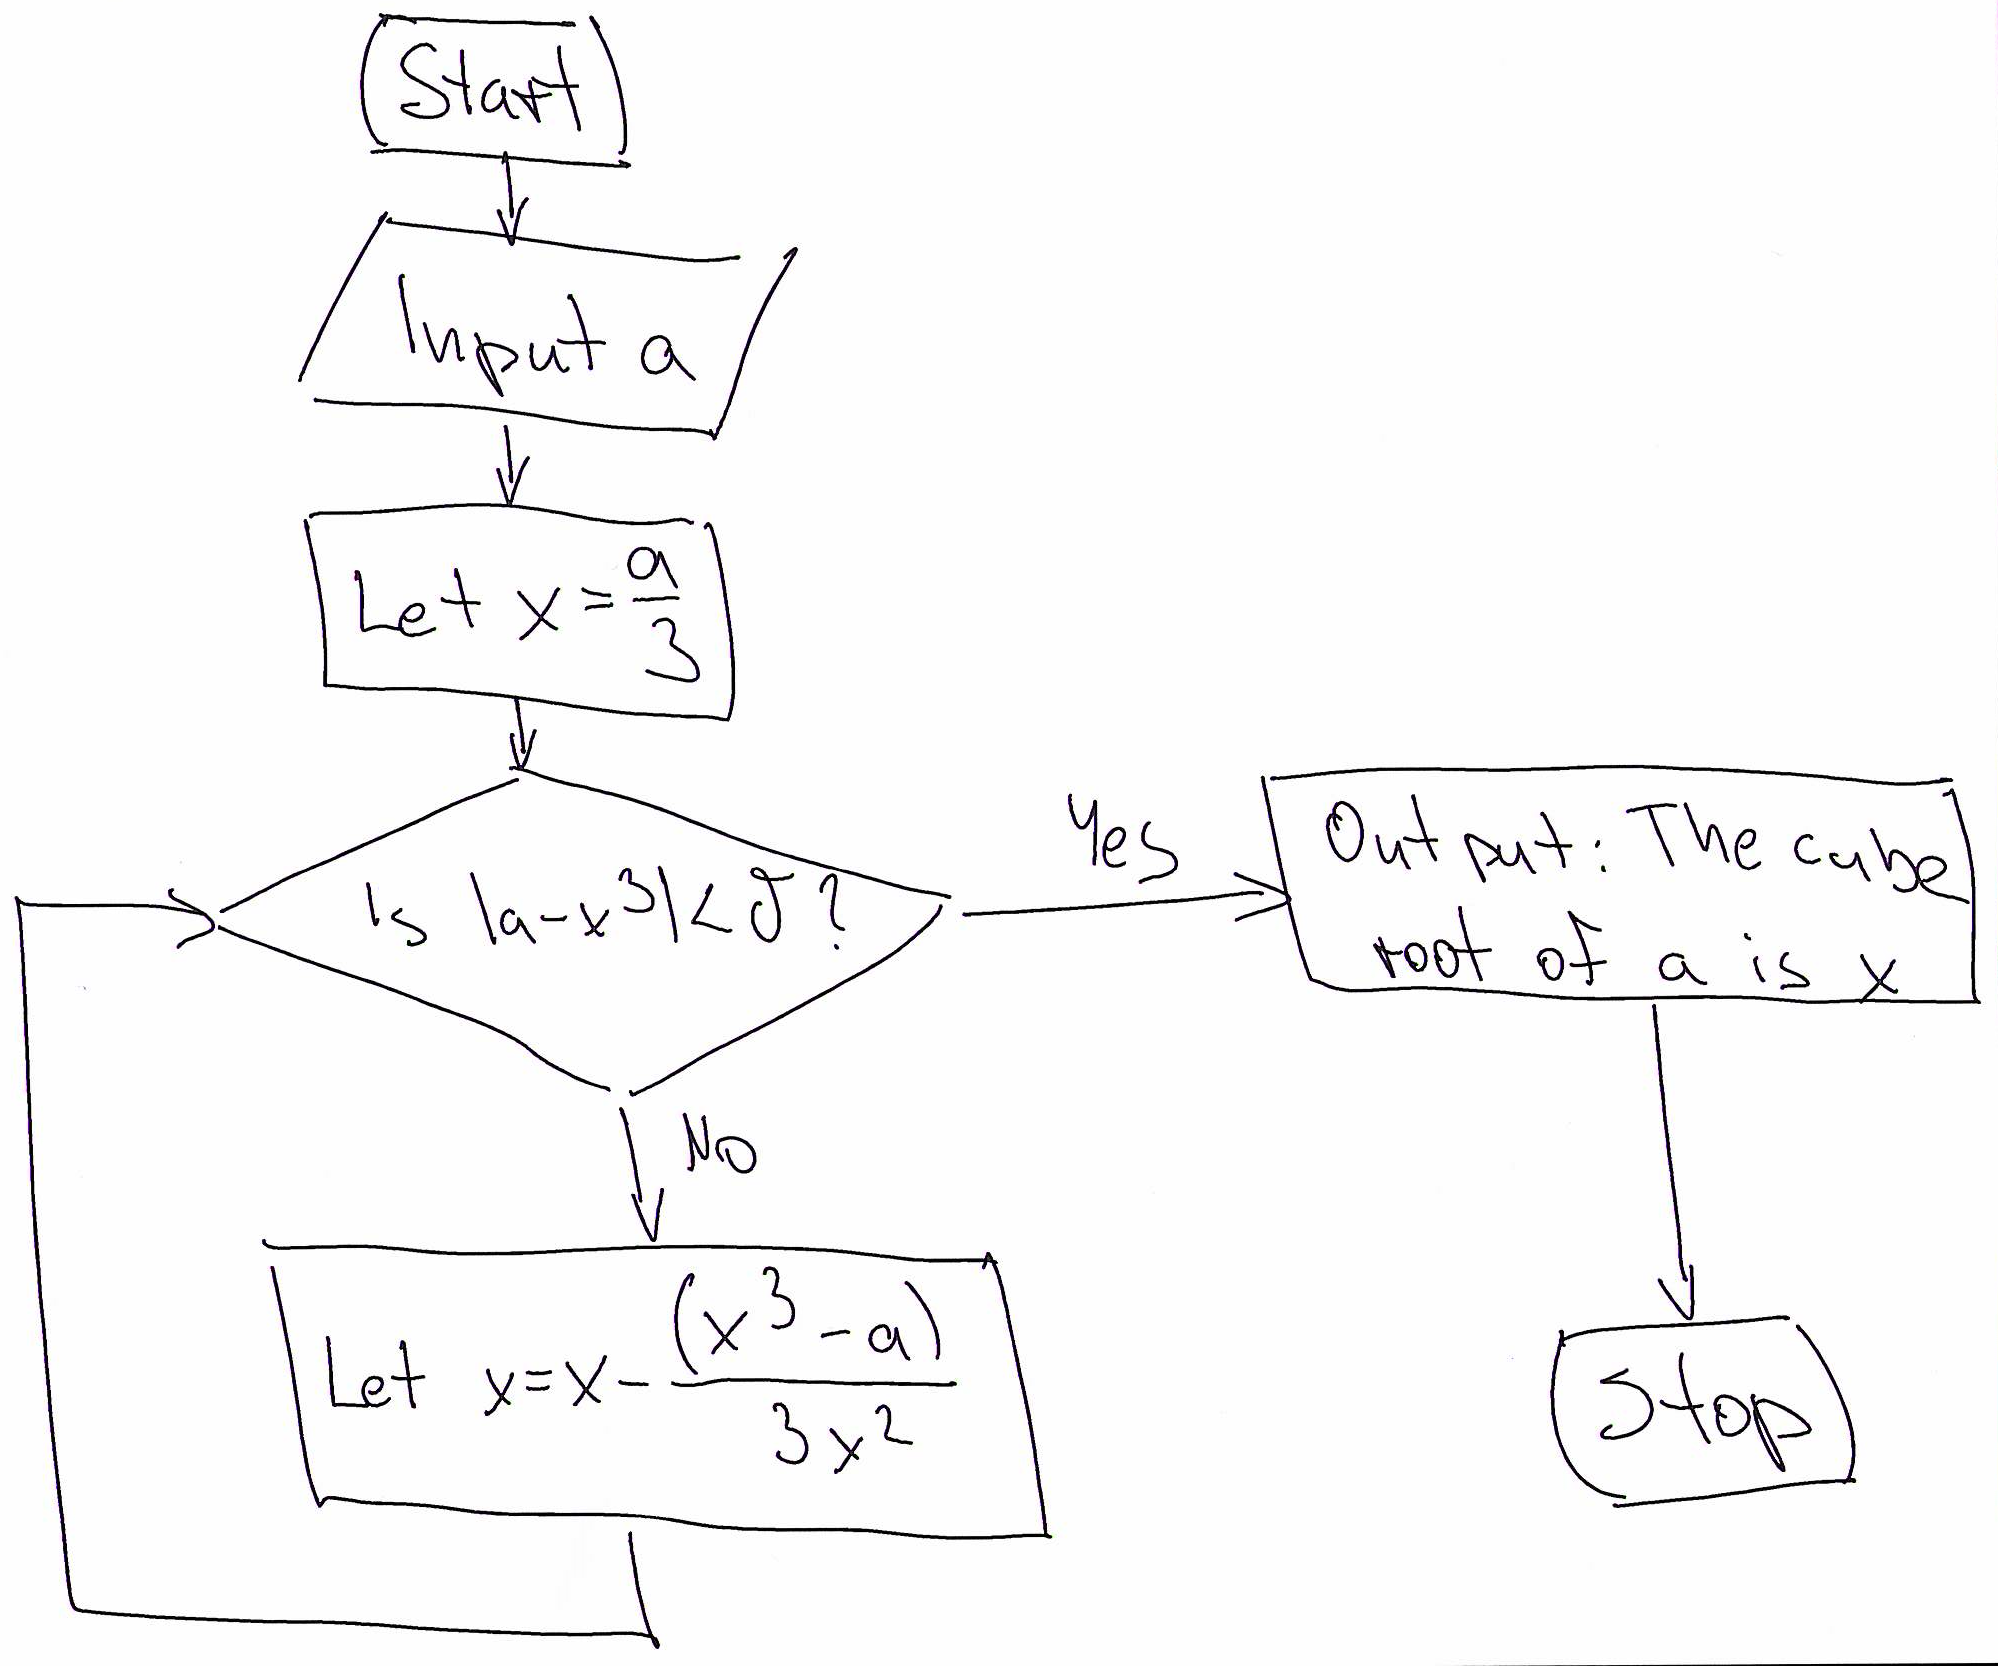 Start
Input a
Let x = a/3
Is |a-x³| < δ ?
Yes
Output: The cube
root of a is x
No
Let x = x - (x³ - a)/3x²
Stop